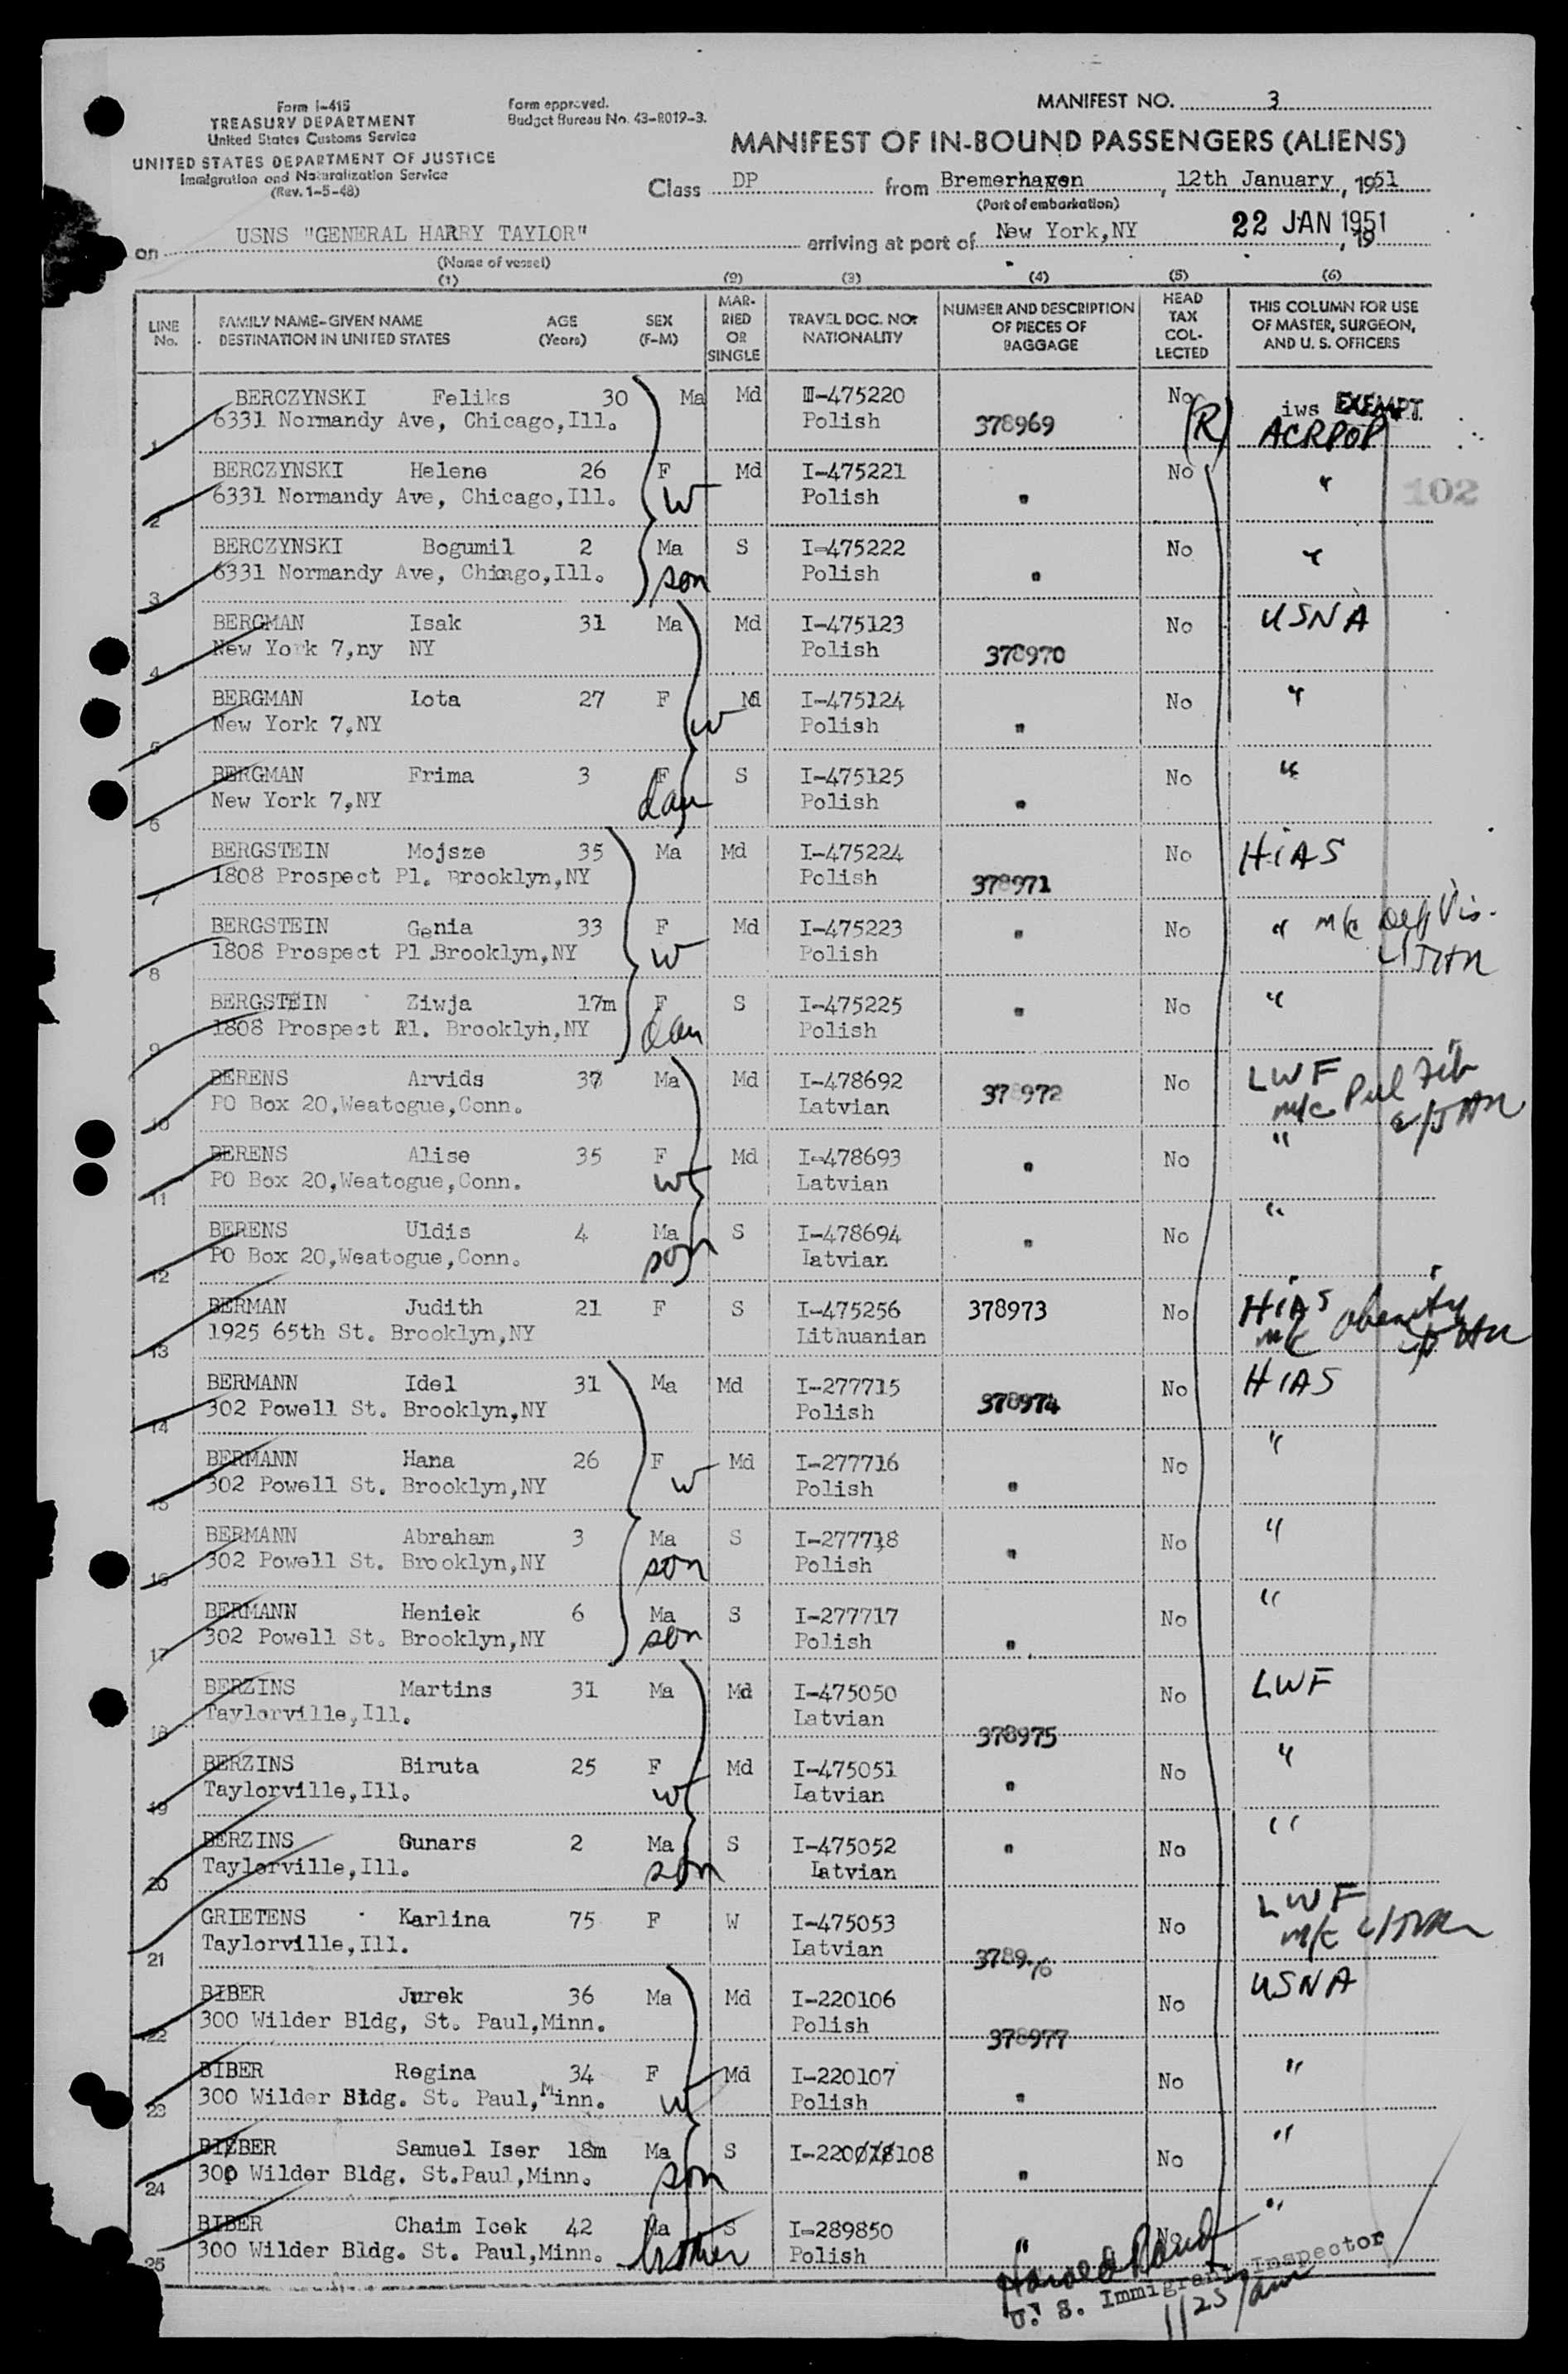 Form I-415
TREASURY DEPARTMENT
United States Customs Service
UNITED STATES DEPARTMENT OF JUSTICE
Immigration and Naturalization Service
(Rev. 1-5-48)
Form approved.
Budget Bureau No. 43-R019-3.
MANIFEST NO. 3
MANIFEST OF IN-BOUND PASSENGERS (ALIENS)
Class DP from Bremerhaven, 12th January, 1951
(Port of embarkation)
on USNS "GENERAL HARRY TAYLOR" arriving at port of New York,NY 22 JAN 1951, 19
(Name of vessel)
(1) (2) (3) (4) (5) (6)
LINE No. FAMILY NAME-GIVEN NAME DESTINATION IN UNITED STATES AGE (Years) SEX (F-M) MARRIED OR SINGLE TRAVEL DOC. NO. NATIONALITY NUMBER AND DESCRIPTION OF PIECES OF BAGGAGE HEAD TAX COLLECTED THIS COLUMN FOR USE OF MASTER, SURGEON, AND U. S. OFFICERS
BERCZYNSKI Feliks 30 Ma Md III-475220 No iws EXEMPT
1 6331 Normandy Ave, Chicago,Ill. Polish 378969 (R) ACRPOP
BERCZYNSKI Helene 26 F Md I-475221 No "
2 6331 Normandy Ave, Chicago,Ill. W Polish " 102
BERCZYNSKI Bogumil 2 Ma S I-475222 No "
3 6331 Normandy Ave, Chiago,Ill. son Polish "
BERGMAN Isak 31 Ma Md I-475123 No USNA
4 New York 7,ny NY Polish 378970
BERGMAN Lota 27 F Md I-475124 No "
5 New York 7,NY w Polish "
BERGMAN Frima 3 F S I-475125 No "
6 New York 7,NY dau Polish "
BERGSTEIN Mojsze 35 Ma Md I-475224 No HIAS
7 1808 Prospect Pl. Brooklyn,NY Polish 378971
BERGSTEIN Genia 33 F Md I-475223 " No " m/c Def Vis.
8 1808 Prospect Pl.Brooklyn,NY W Polish
BERGSTEIN Ziwja 17m F S I-475225 " No "
9 1808 Prospect Pl. Brooklyn,NY dau Polish
BERENS Arvids 37 Ma Md I-478692 378972 No LWF
10 PO Box 20,Weatogue,Conn. Latvian m/c Pul Fib
BERENS Alise 35 F Md I-478693 " No "
11 PO Box 20,Weatogue,Conn. W Latvian
BERENS Uldis 4 Ma S I-478694 " No "
12 PO Box 20,Weatogue,Conn. son Latvian
BERMAN Judith 21 F S I-475256 378973 No HIAS
13 1925 65th St. Brooklyn,NY Lithuanian m/c obesity
BERMANN Idel 31 Ma Md I-277715 No HIAS
14 302 Powell St. Brooklyn,NY Polish 378974
BERMANN Hana 26 F Md I-277716 No "
15 302 Powell St. Brooklyn,NY W Polish "
BERMANN Abraham 3 Ma S I-277718 No "
16 302 Powell St. Brooklyn,NY son Polish "
BERMANN Heniek 6 Ma S I-277717 No "
17 302 Powell St. Brooklyn,NY son Polish "
BERZINS Martins 31 Ma Md I-475050 No LWF
18 Taylorville,Ill. Latvian 378975
BERZINS Biruta 25 F Md I-475051 No "
19 Taylorville,Ill. W Latvian "
BERZINS Gunars 2 Ma S I-475052 " No "
20 Taylorville,Ill. son Latvian
GRIETENS Karlina 75 F W I-475053 No LWF
21 Taylorville,Ill. Latvian 378976 m/c
BIBER Jurek 36 Ma Md I-220106 No USNA
22 300 Wilder Bldg, St. Paul,Minn. Polish 378977
BIBER Regina 34 F Md I-220107 No "
23 300 Wilder Bldg. St. Paul,Minn. W Polish "
BIEBER Samuel Iser 18m Ma S I-220018108 No "
24 300 Wilder Bldg. St.Paul,Minn. son "
BIBER Chaim Icek 42 Ma S I-289850 " No "
25 300 Wilder Bldg. St. Paul,Minn. brother Polish
U. S. Immigrant Inspector